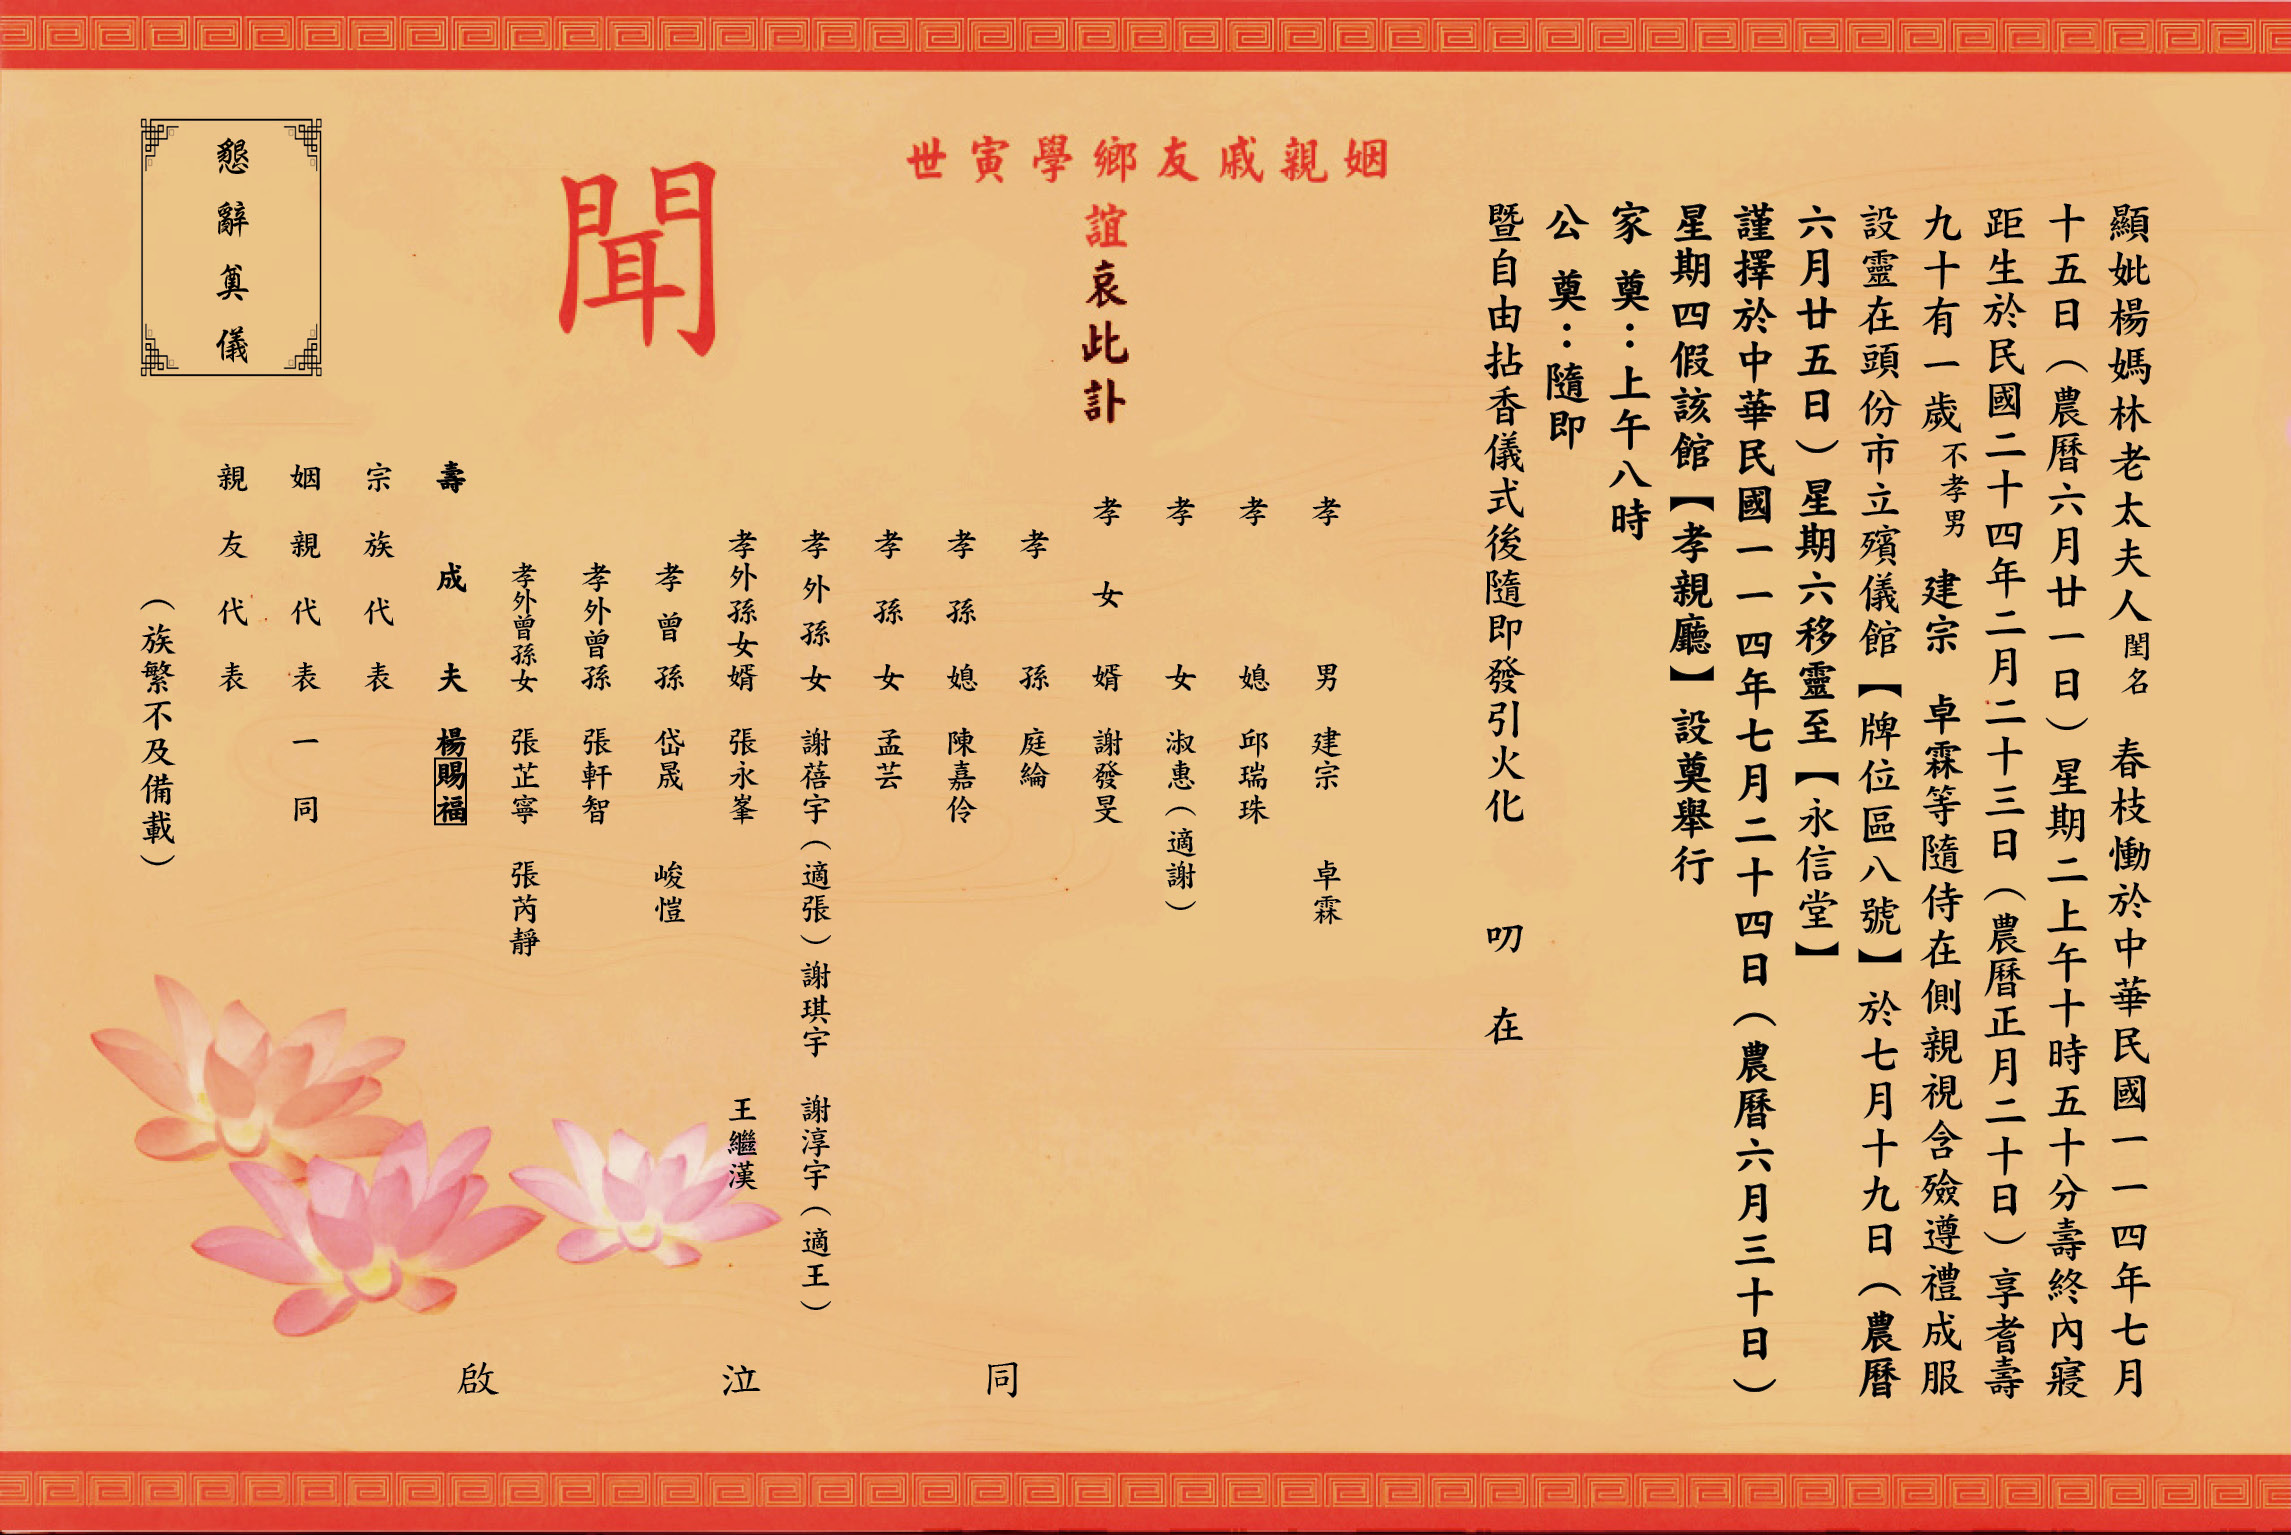 顯妣楊媽林老太夫人閨名　春枝慟於中華民國一一四年七月
十五日（農曆六月廿一日）星期二上午十時五十分壽終內寢
距生於民國二十四年二月二十三日（農曆正月二十日）享耆壽
九十有一歲不孝男　建宗　卓霖等隨侍在側親視含殮遵禮成服
設靈在頭份市立殯儀館【牌位區八號】於七月十九日（農曆
六月廿五日）星期六移靈至【永信堂】
謹擇於中華民國一一四年七月二十四日（農曆六月三十日）
星期四假該館【孝親廳】設奠舉行
家奠：上午八時
公奠：隨即
暨自由拈香儀式後隨即發引火化　叨在
姻親戚友鄉學寅世
誼哀此訃
聞
孝男　建宗　卓霖
孝媳　邱瑞珠
孝女　淑惠（適謝）
孝女婿　謝發旻
孝孫　庭綸
孝孫媳　陳嘉伶
孝孫女　孟芸
孝外孫女　謝蓓宇（適張）謝琪宇　謝淳宇（適王）
孝外孫女婿　張永峯　王繼漢
孝曾孫　岱晟　峻愷
孝外曾孫　張軒智
孝外曾孫女　張芷寧　張芮靜
壽成夫　楊賜福
宗族代表
姻親代表　一同
親友代表
（族繁不及備載）
同泣啟
懇辭奠儀